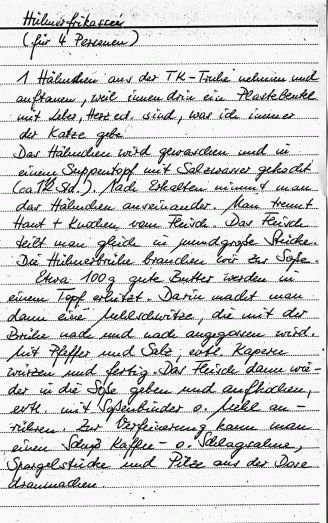 Hühnerfrikassee
(für 4 Personen)
1 Hähnchen aus der TK-Truhe nehmen und
auftauen, weil innen drin ein Plastebeutel
mit Leber, Herz ect. sind, was ich immer
der Katze gebe.
Das Hähnchen wird gewaschen und in
einem Suppentopf mit Salzwasser gekocht
(ca 1 Std.). Nach Erkalten nimmt man
das Hähnchen auseinander. Man trennt
Haut + Knochen vom Fleisch. Das Fleisch
teilt man gleich in mundgroße Stücke.
Die Hühnerbrühe brauchen wir zur Soße.
Etwa 100g gute Butter werden in
einem Topf erhitzt. Darin macht man
dann eine Mehlschwitze, die mit der
Brühe nach und nach angegossen wird.
Mit Pfeffer und Salz, evtl. Kapern
würzen und fertig. Das Fleisch dann wie-
der in die Soße geben und aufkochen,
evtl. mit Soßenbinder o. Mehl an-
rühren. Zur Verfeinerung kann man
einen Schuß Kaffee- o. Schlagsahne,
Spargelstücke und Pilze aus der Dose
dranmachen.